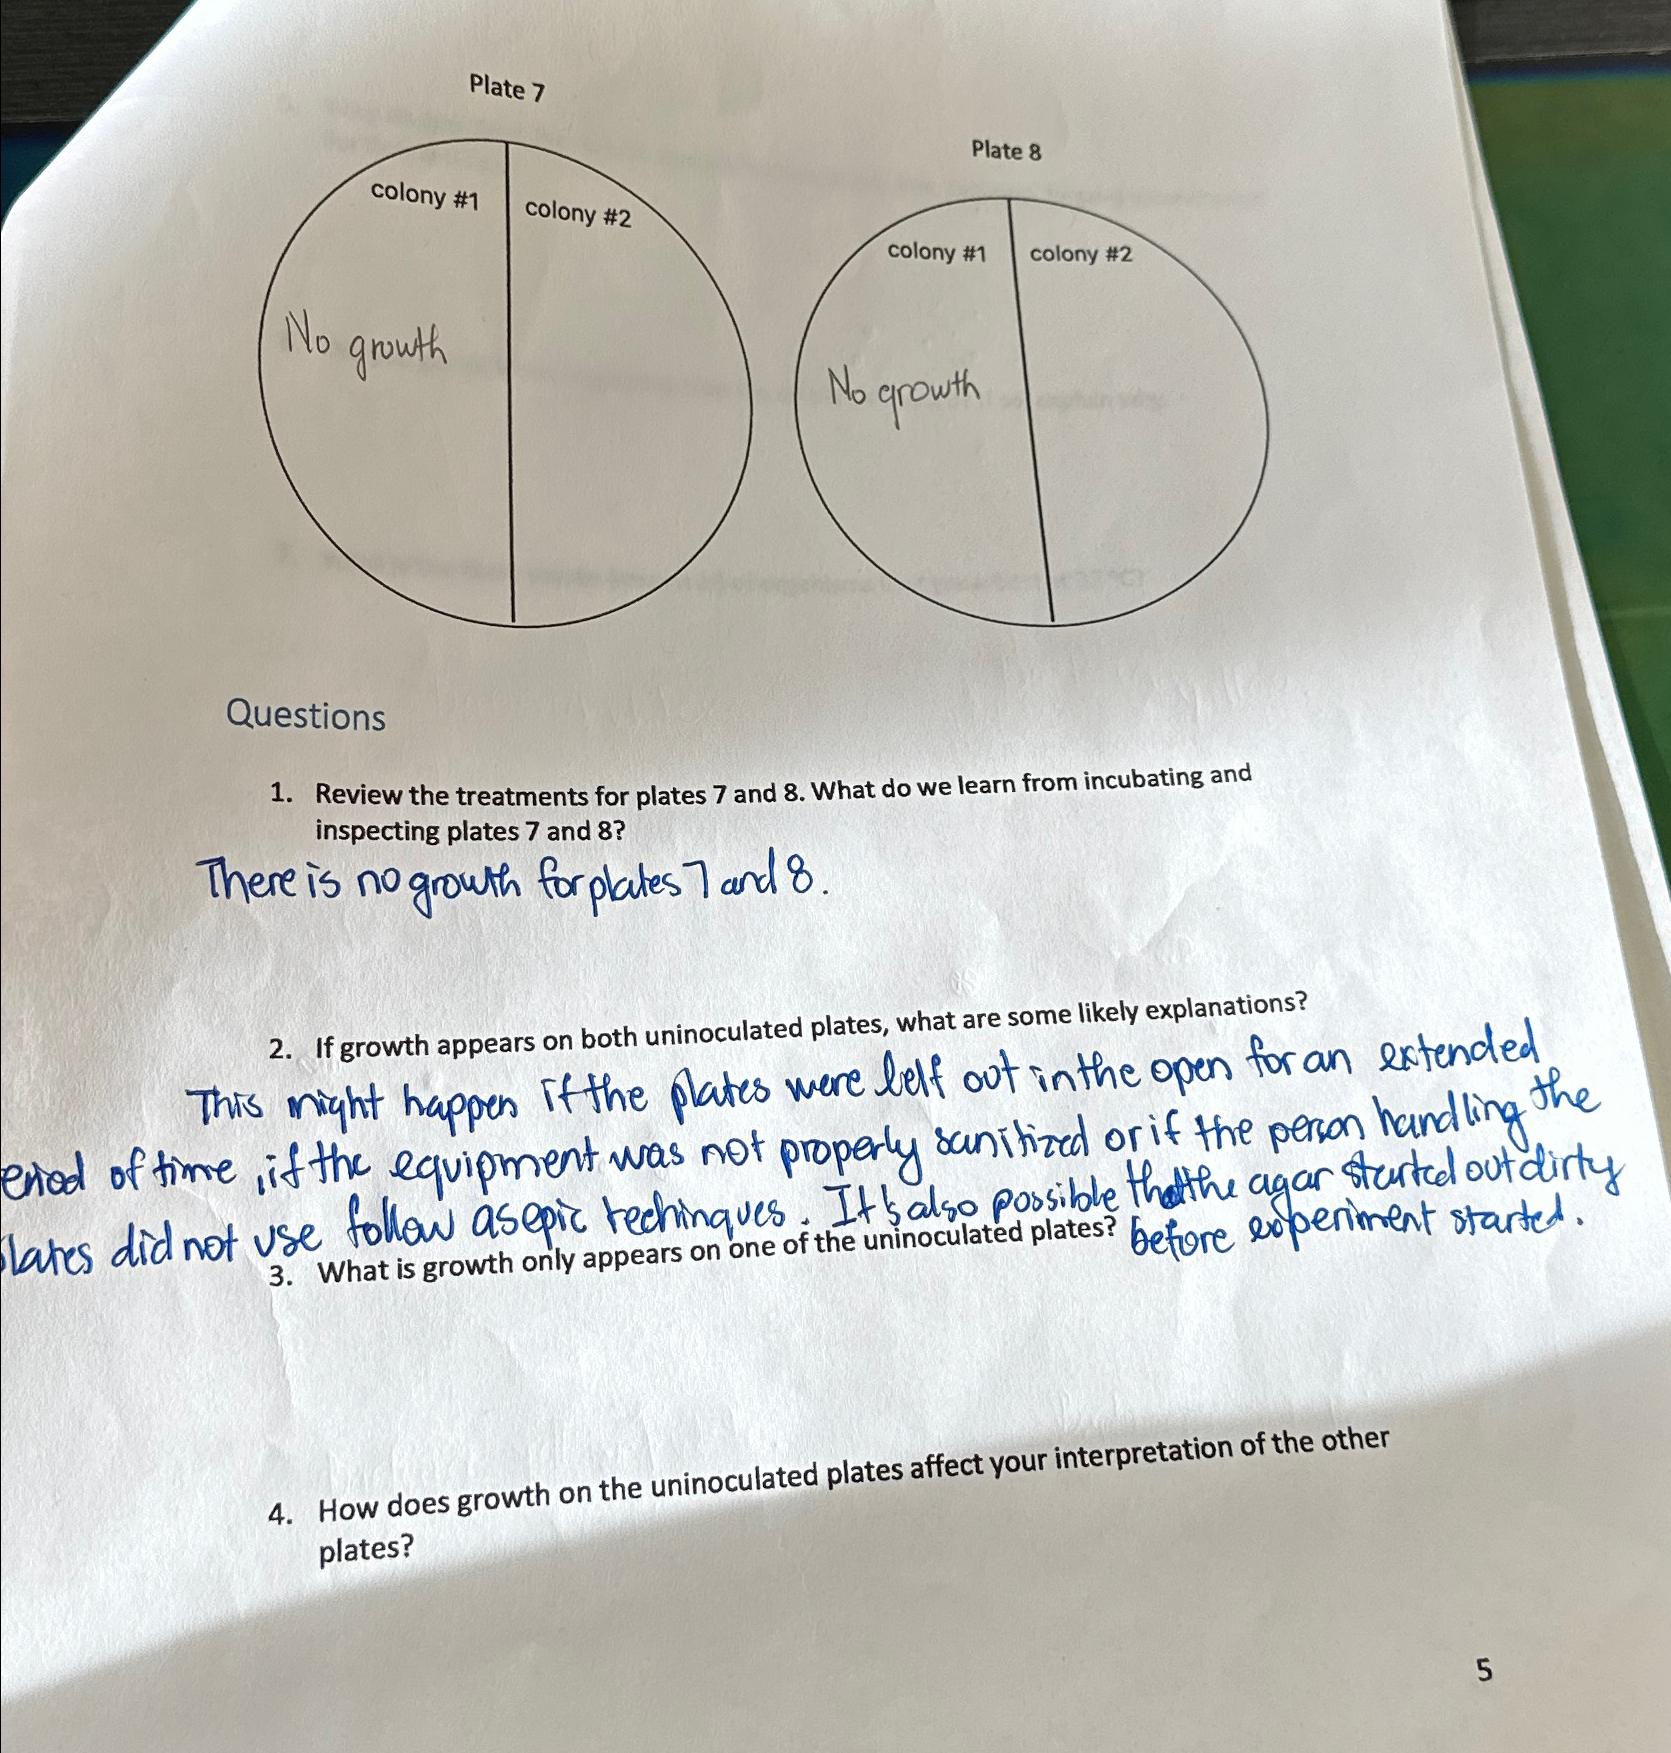 Plate 7
Plate 8
colony #1
colony #2
colony #1
colony #2
No growth
No growth
Questions
1. Review the treatments for plates 7 and 8. What do we learn from incubating and
inspecting plates 7 and 8?
There is no growth for plates 7 and 8.
2. If growth appears on both uninoculated plates, what are some likely explanations?
This might happen if the plates were lelf out in the open for an extended
eriod of time, if the equipment was not properly sanitized or if the person handling the
lates did not use follow asepic techinques. It's also possible that the agar started out dirty
before experiment started.
3. What is growth only appears on one of the uninoculated plates?
4. How does growth on the uninoculated plates affect your interpretation of the other
plates?
5